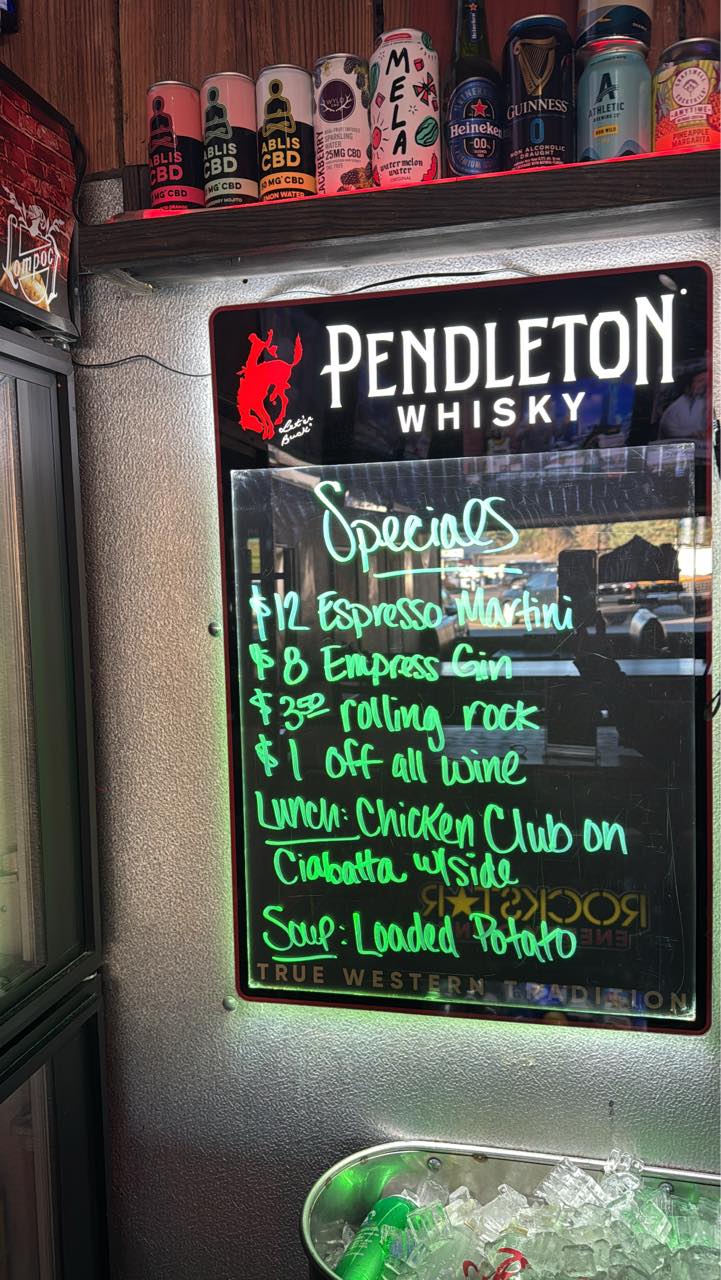 ABLIS
CBD
MG CBD
ABLIS
CBD
MG CBD
ABLIS
CBD
MG CBD
LEMON WATER
WYLD
REAL FRUIT INFUSED
SPARKLING
WATER
25MG CBD
BLACKBERRY
MELA
water melon
water
ORIGINAL
Heineken
Heineken
0.0
GUINNESS
0
NON ALCOHOLIC
DRAUGHT
A
ATHLETIC
BREWING CO
RUN WILD
PINEAPPLE
MARGARITA
ompoc
PENDLETON
WHISKY
Let'er
Buck
Specials
$12 Espresso Martini
$8 Empress Gin
$3.50 rolling rock
$1 off all wine
Lunch: Chicken Club on
Ciabatta w/side
Soup: Loaded Potato
ROCKSTAR
TRUE WESTERN TRADITION